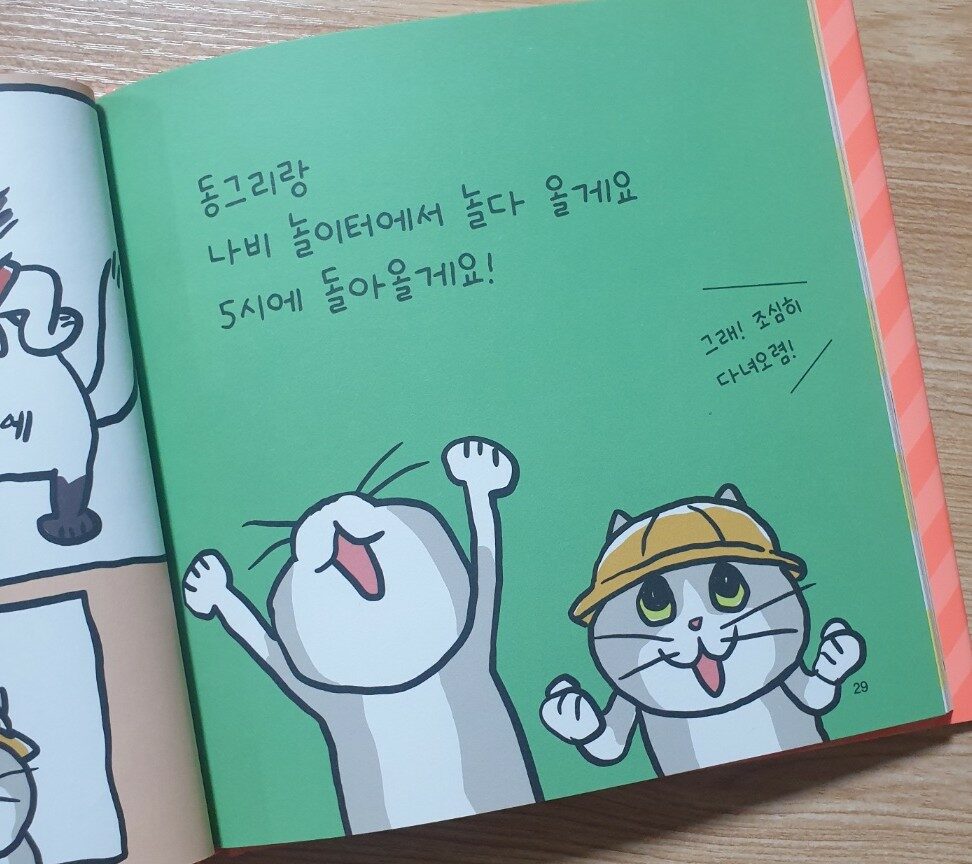 예
동그리랑
나비 놀이터에서 놀다 올게요
5시에 돌아올게요!
그래! 조심히
다녀오렴!
29